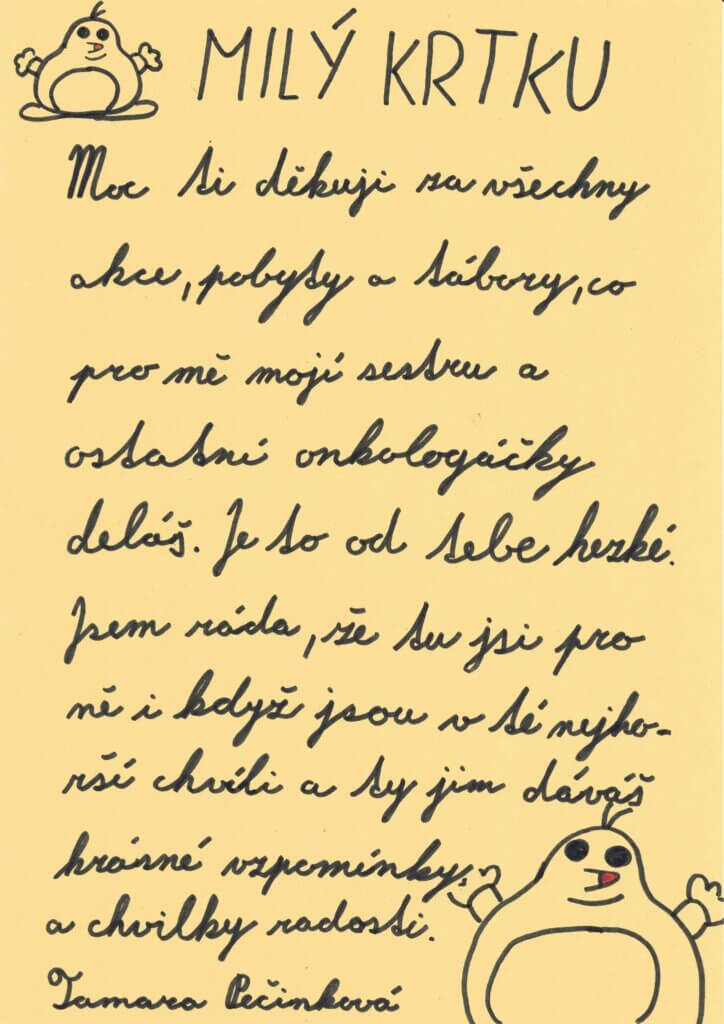 MILÝ KRTKU
Moc ti děkuji za všechny
akce, pobyty a tábory, co
pro mě mojí sestru a
ostatní onkologáčky
deláš. Je to od tebe hezké.
Jsem ráda, že tu jsi pro
ně i když jsou v té nejho-
rší chvíli a ty jim dáváš
krásné vzpomínky
a chvilky radosti.
Tamara Pečinková